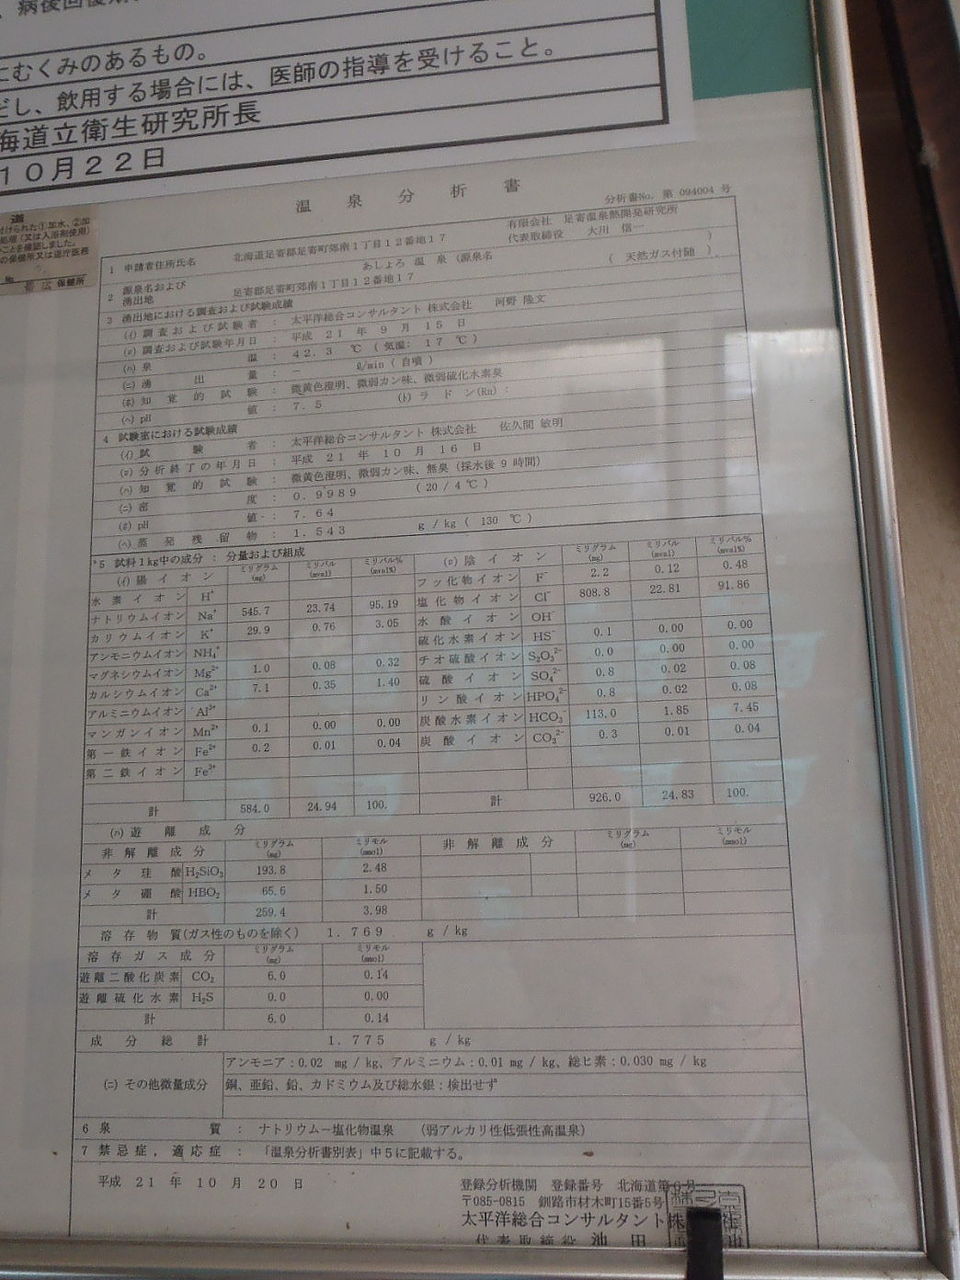 にむくみのあるもの。
だし、飲用する場合には、医師の指導を受けること。
海道立衛生研究所長
10月22日
道
保健所
温泉分析書
分析書No. 第 094004 号
1 申請者住所氏名 北海道足寄郡足寄町郊南1丁目12番地17 有限会社 足寄温泉熱開発研究所
代表取締役 大川 信一
2 源泉名および湧出地 あしょろ 温 泉 (源泉名 ( 天然ガス付随 ) )
足寄郡足寄町郊南1丁目12番地17
3 湧出地における調査および試験成績
(イ) 調査および試験者 : 太平洋総合コンサルタント 株式会社 河野 隆文
(ロ) 調査および試験年月日 : 平成 21 年 9 月 15 日
(ハ) 泉 温 : 42.3 ℃ ( 気温: 17 ℃ )
(ニ) 湧 出 量 : - ℓ/min ( 自噴 )
(ホ) 知覚的試験 : 微黄色澄明、微弱カン味、微弱硫化水素臭
(ヘ) pH 値 : 7.5 (ト) ラドン(Rn) :
4 試験室における試験成績
(イ) 試 験 者 : 太平洋総合コンサルタント 株式会社 佐久間 敏明
(ロ) 分析終了の年月日 : 平成 21 年 10 月 16 日
(ハ) 知覚的試験 : 微黄色澄明、微弱カン味、無臭 (採水後 9 時間)
(ニ) 密 度 : 0.9989 ( 20/4℃ )
(ホ) pH 値 : 7.64
(ヘ) 蒸発残留物 : 1.543 g/kg ( 130 ℃ )
5 試料1kg中の成分 : 分量および組成
(イ) 陽イオン ミリグラム (mg) ミリバル (mval) ミリバル% (mval%) (ロ) 陰イオン ミリグラム (mg) ミリバル (mval) ミリバル% (mval%)
水素イオン H⁺ フッ化物イオン F⁻ 2.2 0.12 0.48
ナトリウムイオン Na⁺ 545.7 23.74 95.19 塩化物イオン Cl⁻ 808.8 22.81 91.86
カリウムイオン K⁺ 29.9 0.76 3.05 水酸イオン OH⁻
アンモニウムイオン NH₄⁺ 硫化水素イオン HS⁻ 0.1 0.00 0.00
マグネシウムイオン Mg²⁺ 1.0 0.08 0.32 チオ硫酸イオン S₂O₃²⁻ 0.0 0.00 0.00
カルシウムイオン Ca²⁺ 7.1 0.35 1.40 硫酸イオン SO₄²⁻ 0.8 0.02 0.08
アルミニウムイオン Al³⁺ リン酸イオン HPO₄²⁻ 0.8 0.02 0.08
マンガンイオン Mn²⁺ 0.1 0.00 0.00 炭酸水素イオン HCO₃⁻ 113.0 1.85 7.45
第一鉄イオン Fe²⁺ 0.2 0.01 0.04 炭酸イオン CO₃²⁻ 0.3 0.01 0.04
第二鉄イオン Fe³⁺
計 584.0 24.94 100. 計 926.0 24.83 100.
(ハ) 遊離成分
非解離成分 ミリグラム (mg) ミリモル (mmol) 非解離成分 ミリグラム (mg) ミリモル (mmol)
メタ珪酸 H₂SiO₃ 193.8 2.48
メタ硼酸 HBO₂ 65.6 1.50
計 259.4 3.98
溶存物質(ガス性のものを除く) 1.769 g/kg
溶存ガス成分 ミリグラム (mg) ミリモル (mmol)
遊離二酸化炭素 CO₂ 6.0 0.14
遊離硫化水素 H₂S 0.0 0.00
計 6.0 0.14
成分総計 1.775 g/kg
(ニ) その他微量成分 アンモニア:0.02 mg/kg、アルミニウム:0.01 mg/kg、総ヒ素:0.030 mg/kg
銅、亜鉛、鉛、カドミウム及び総水銀:検出せず
6 泉 質 : ナトリウム-塩化物温泉 (弱アルカリ性低張性高温泉)
7 禁忌症,適応症 : 「温泉分析書別表」中5に記載する。
平成 21 年 10 月 20 日
登録分析機関 登録番号 北海道第6号
〒085-0815 釧路市材木町15番5号
太平洋総合コンサルタント株
代表取締役 池 田